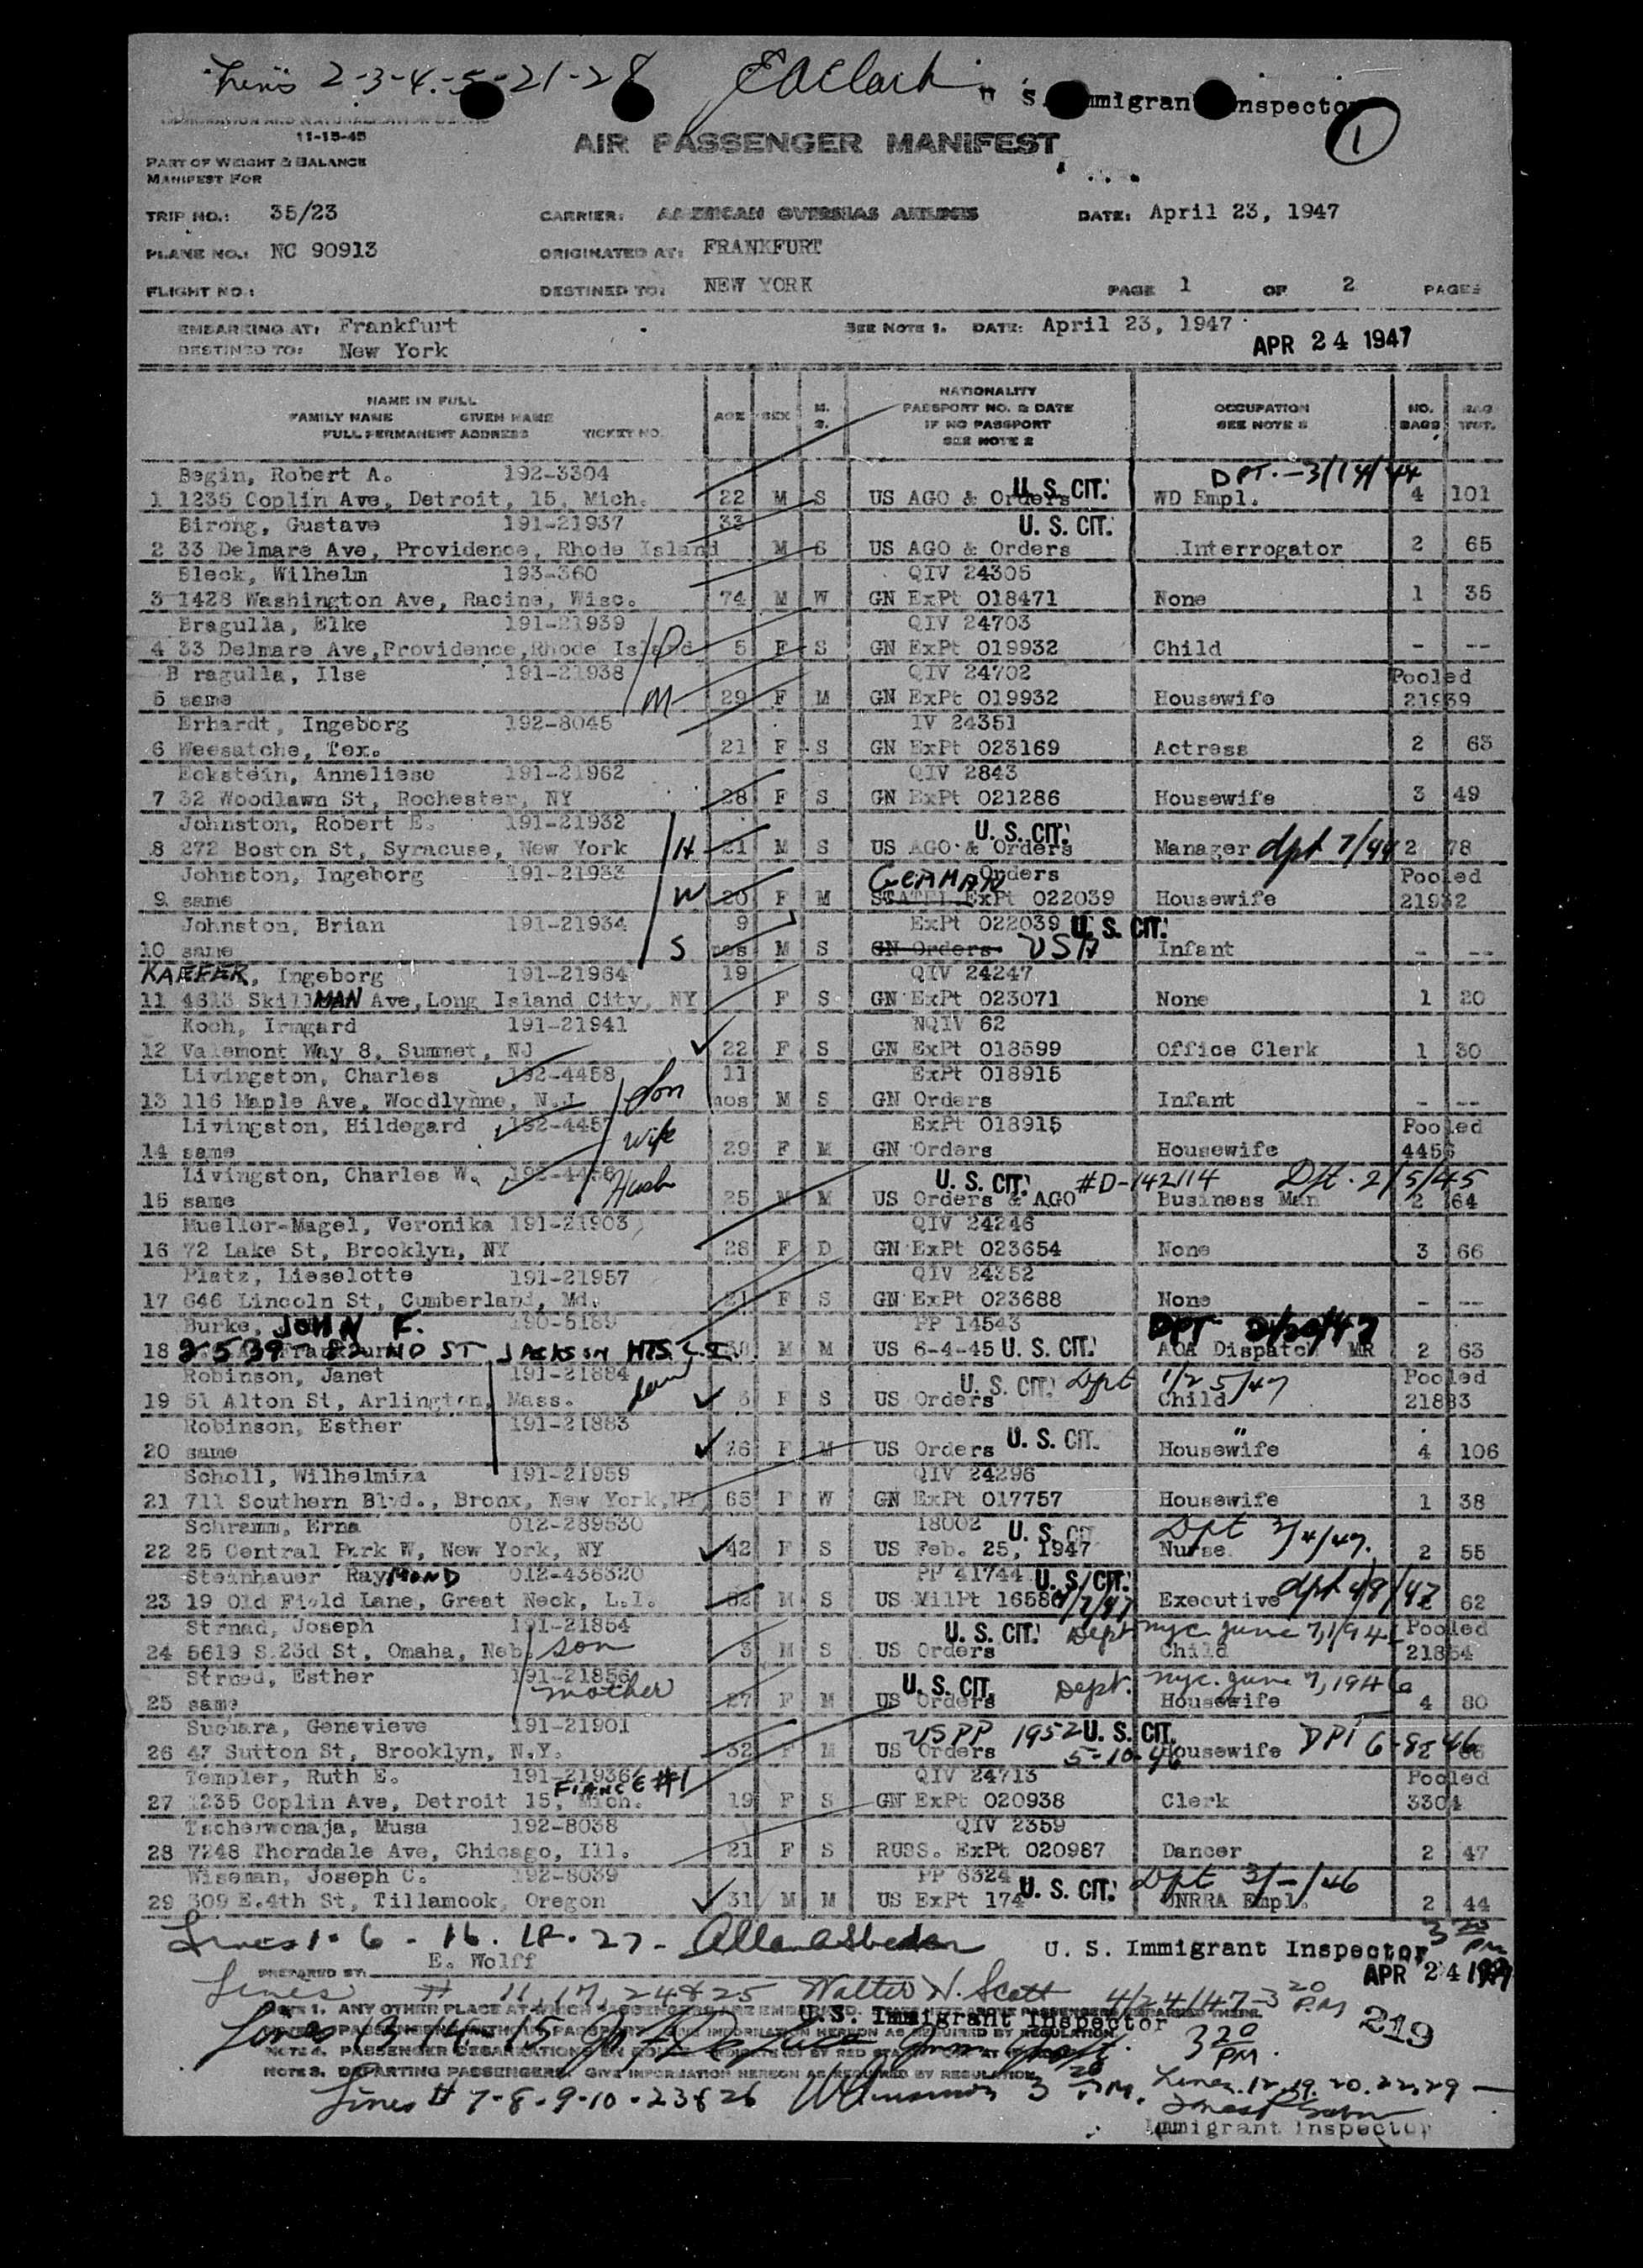 Lines 2-3-4-5-21-28 E A Clark U S. Immigrant Inspector
1
11-15-45
AIR PASSENGER MANIFEST
PART OF WEIGHT & BALANCE
MANIFEST FOR
TRIP NO.: 35/23 CARRIER: AMERICAN OVERSEAS AIRLINES DATE: April 23, 1947
PLANE NO.: NC 90913 ORIGINATED AT: FRANKFURT
FLIGHT NO.: DESTINED TO: NEW YORK PAGE 1 OF 2 PAGES
EMBARKING AT: Frankfurt SEE NOTE 1. DATE: April 23, 1947
DESTINED TO: New York APR 24 1947
NAME IN FULL
FAMILY NAME GIVEN NAME
FULL PERMANENT ADDRESS TICKET NO.
AGE SEX M. S.
NATIONALITY
PASSPORT NO. & DATE
IF NO PASSPORT
SEE NOTE 2
OCCUPATION
SEE NOTE 3
NO. BAGS BAG WGT.
Begin, Robert A. 192-3304 DPT.-3/14/44
1 1235 Coplin Ave, Detroit, 15, Mich. 22 M S US AGO & Orders U. S. CIT. WD Empl. 4 101
Birong, Gustave 191-21937 33 U. S. CIT.
2 33 Delmare Ave, Providence, Rhode Island M S US AGO & Orders Interrogator 2 65
Bleck, Wilhelm 193-360 QIV 24305
3 1428 Washington Ave, Racine, Wisc. 74 M W GN ExPt 018471 None 1 35
Bragulla, Elke 191-21939 QIV 24703
4 33 Delmare Ave,Providence,Rhode Island D 5 F S GN ExPt 019932 Child - --
B ragulla, Ilse 191-21938 QIV 24702 Pooled
5 same M 29 F M GN ExPt 019932 Housewife 21939
Erhardt, Ingeborg 192-8045 IV 24351
6 Weesatche, Tex. 21 F S GN ExPt 023169 Actress 2 63
Eckstein, Anneliese 191-21962 QIV 2843
7 32 Woodlawn St, Rochester, NY 28 F S GN ExPt 021286 Housewife 3 49
Johnston, Robert E. 191-21932 U. S. CIT.
8 272 Boston St, Syracuse, New York H 21 M S US AGO & Orders Manager dpt 7/44 2 78
Johnston, Ingeborg 191-21933 Orders GERMAN Pooled
9 same W 20 F M STATEL ExPt 022039 Housewife 21932
Johnston, Brian 191-21934 9 ExPt 022039 U. S. CIT.
10 same S mos M S GN Orders USA Infant - --
KAEFER, Ingeborg 191-21964 19 QIV 24247
11 4613 SkillMAN Ave,Long Island City, NY F S GN ExPt 023071 None 1 20
Koch, Irmgard 191-21941 NQIV 62
12 Valemont Way 8, Summet, NJ 22 F S GN ExPt 018599 Office Clerk 1 30
Livingston, Charles 192-4458 11 ExPt 018915
13 116 Maple Ave, Woodlynne, N.J. Son mos M S GN Orders Infant - --
Livingston, Hildegard 192-4457 ExPt 018915 Pooled
14 same wife 29 F M GN Orders Housewife 4456
Livingston, Charles W. 192-4456 U. S. CIT. #D-142114 Dpt. 2/5/45
15 same Husb 25 M M US Orders & AGO Business Man 2 64
Mueller-Magel, Veronika 191-21903 QIV 24246
16 72 Lake St, Brooklyn, NY 28 F D GN ExPt 023654 None 3 66
Platz, Lieselotte 191-21957 QIV 24352
17 646 Lincoln St, Cumberland, Md. 21 F S GN ExPt 023688 None - --
Burke, JOHN F. 190-5189 PP 14543 DPT 2/20/47
18 2539- 82 ND ST JACKSON HTS L.I. M M US 6-4-45 U. S. CIT. AOA Dispatch MR 2 63
Robinson, Janet 191-21884 U. S. CIT. Dpt 1/25/47 Pooled
19 51 Alton St, Arlington, Mass. 3 F S US Orders Child 21883
Robinson, Esther 191-21883 "
20 same 26 F M US Orders U. S. CIT. Housewife 4 106
Scholl, Wilhelmina 191-21959 QIV 24296
21 711 Southern Blvd., Bronx, New York,NY 65 F W GN ExPt 017757 Housewife 1 38
Schramm, Erna 012-289530 18002 U. S. CIT Dpt 3/4/47.
22 25 Central Park W, New York, NY 42 F S US Feb. 25, 1947 Nurse 2 55
Steinhauer RayMOND 012-436320 PP 41744 U. S. CIT.
23 19 Old Field Lane, Great Neck, L.I. 52 M S US MilPt 16586 Executive dpt 4/9/47 2 62
Strnad, Joseph 191-21854 U. S. CIT. Dept nyc. June 7, 194 Pooled
24 5619 S.23d St, Omaha, Neb. son 3 M S US Orders Child 21854
Strnad, Esther 191-21856 U. S. CIT. Dept. nyc. June 7, 1946
25 same mother 27 F M US Orders Housewife 4 80
Suchara, Genevieve 191-21901 USPP 1952 U. S. CIT.
26 47 Sutton St, Brooklyn, N.Y. 32 F M US Orders 5-10-46 Housewife DPT 6-8-46 2
Templer, Ruth E. 191-21936 FIANCE #1 QIV 24713 Pooled
27 1235 Coplin Ave, Detroit 15, Mich. 19 F S GN ExPt 020938 Clerk 3304
Tscherwonaja, Musa 192-8038 QIV 2359
28 7248 Thorndale Ave, Chicago, Ill. 21 F S RUSS. ExPt 020987 Dancer 2 47
Wiseman, Joseph C. 192-8039 PP 6324 Dpt 3/-/46
29 309 E.4th St, Tillamook, Oregon 31 M M US ExPt 174 U. S. CIT. UNRRA Empl. 2 44
Lines 1. 6 - 16. 18. 27 - U. S. Immigrant Inspector 3 20 PM
PREPARED BY: E. Wolff APR 24 1947
Lines # 11, 17, 24 & 25 Walter N. Scott 4/24/47 - 3 20 PM
NOTE 1. ANY OTHER PLACE AT WHICH PASSENGERS ARE EMBARKED.
U.S. Immigrant Inspector 219
Lines 13-14-15 3 20 PM.
NOTE 3. DEPARTING PASSENGERS. GIVE INFORMATION HEREON AS REQUIRED BY REGULATION.
Lines # 7-8-9-10-23 & 26 3 20 P.M. Lines. 12. 19. 20. 22. 29 -
Immigrant Inspector